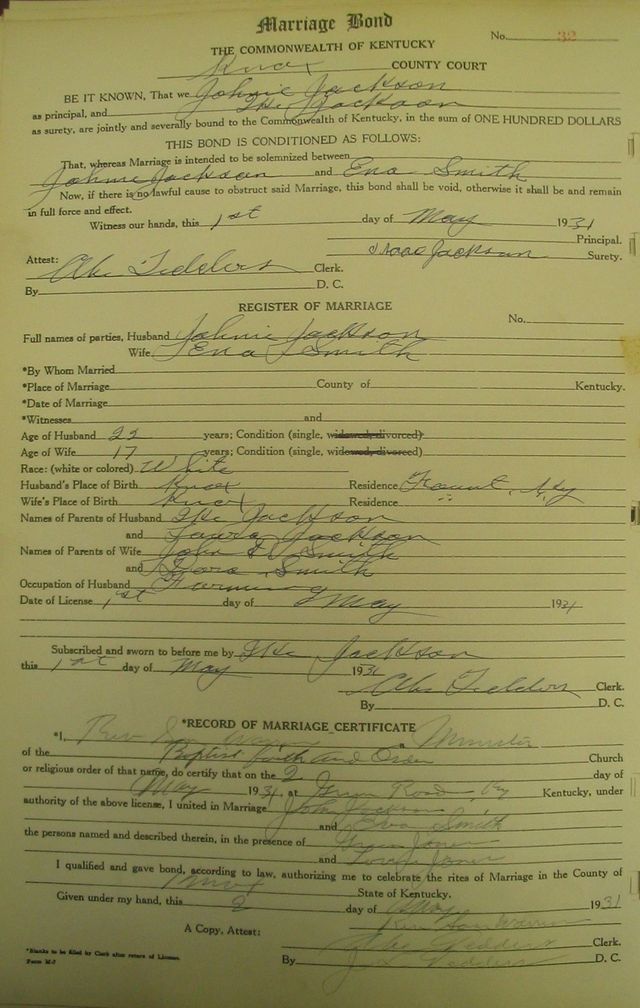 Marriage Bond
No. 32
THE COMMONWEALTH OF KENTUCKY
Knox COUNTY COURT
BE IT KNOWN, That we Johnie Jackson
as principal, and Ike Jackson
as surety, are jointly and severally bound to the Commonwealth of Kentucky, in the sum of ONE HUNDRED DOLLARS
THIS BOND IS CONDITIONED AS FOLLOWS:
That, whereas Marriage is intended to be solemnized between
Johnie Jackson and Ena Smith
Now, if there is no lawful cause to obstruct said Marriage, this bond shall be void, otherwise it shall be and remain
in full force and effect.
Witness our hands, this 1st day of May 1931
Principal.
Isaac Jackson Surety.
Attest:
Clerk.
By D. C.
REGISTER OF MARRIAGE
No.
Full names of parties, Husband Johnie Jackson
Wife Ena Smith
*By Whom Married
*Place of Marriage County of Kentucky.
*Date of Marriage
*Witnesses and
Age of Husband 22 years; Condition (single, widowed, divorced)
Age of Wife 17 years; Condition (single, widowed, divorced)
Race: (white or colored) White
Husband's Place of Birth Knox Residence Fount, Ky
Wife's Place of Birth Knox Residence "
Names of Parents of Husband Ike Jackson
and Laura Jackson
Names of Parents of Wife John Smith
and Dora Smith
Occupation of Husband Farming
Date of License 1st day of May 1931
Subscribed and sworn to before me by Ike Jackson
this 1st day of May 1931
Clerk.
By D. C.
*RECORD OF MARRIAGE CERTIFICATE
*I, Rev a Minister
of the Baptist Faith and Order Church
or religious order of that name, do certify that on the 2 day of
May 1931, at Green Road, Ky Kentucky, under
authority of the above license, I united in Marriage John Jackson
and Smith
the persons named and described therein, in the presence of Jones
and Jones
I qualified and gave bond, according to law, authorizing me to celebrate the rites of Marriage in the County of
Knox State of Kentucky.
Given under my hand, this 2 day of May 1931
Rev
A Copy, Attest: Clerk.
By D. C.
*Blanks to be filled by Clerk after return of License.
Form M-7